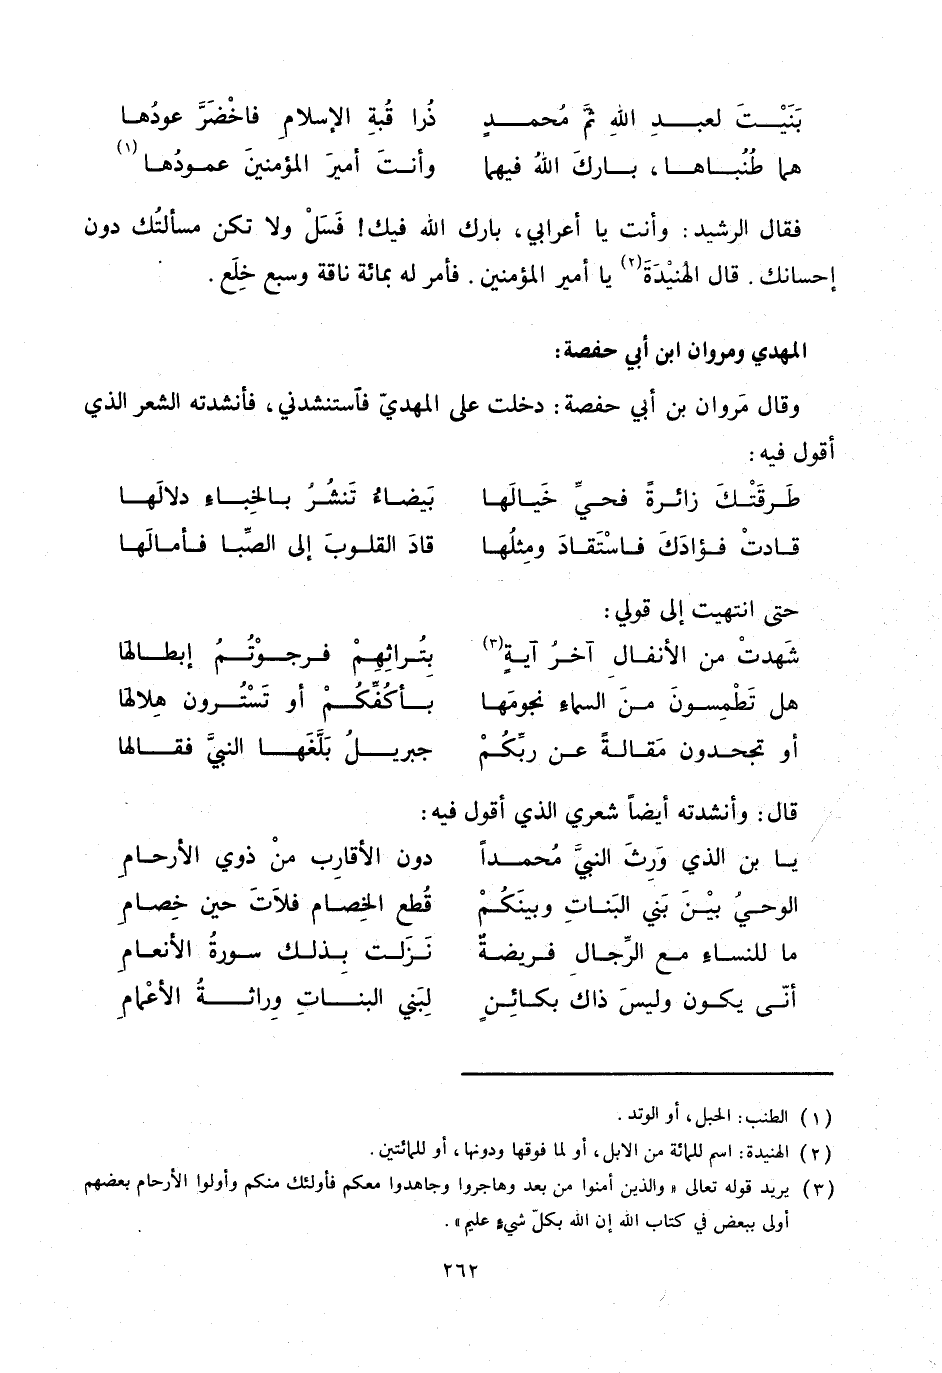 بَنَيْتَ لعبد الله ثمَّ مُحمدٍ ذُرا قُبةِ الإسلامِ فاخْضَرَّ عودُها
هما طُنُباها، باركَ اللهُ فيهما وأنتَ أميرَ المؤمنينَ عمودُها (١)
فقال الرشيد: وأنت يا أعرابي، بارك الله فيك! فَسَلْ ولا تكن مسألتُك دون
إحسانك. قال الهُنيْدَةَ (٢) يا أمير المؤمنين. فأمر له بمائة ناقة وسبع خِلَع.
المهدي ومروان ابن أبي حفصة:
وقال مَروان بن أبي حفصة: دخلت على المهديّ فآستنشدني، فأنشدته الشعر الذي
أقول فيه:
طَرقَتْكَ زائرةً فحيِّ خَيالَها بَيضاءُ تَنشُرُ بالخِباءِ دلالَها
قادتْ فؤادَكَ فاسْتَقادَ ومِثلُها قادَ القلوبَ إلى الصِّبا فأمالَها
حتى انتهيت إلى قولي:
شَهدتْ من الأنفالِ آخرُ آيةٍ (٣) بتُراثِهِمْ فرجوْتُمُ إبطالها
هل تَطْمِسونَ منَ السماءِ نجومَها بأكُفِّكُمْ أو تَسْتُرون هِلالها
أو تجحدون مَقالةً عن ربِّكُمْ جبريلُ بَلَّغَها النبيَّ فقالها
قال: وأنشدته أيضاً شعري الذي أقول فيه:
يا بن الذي وَرِثَ النبيَّ مُحمداً دون الأقارِب منْ ذوي الأرحامِ
الوحيُ بيْنَ بَني البَناتِ وبينَكُمْ قُطع الخِصام فلاَتَ حين خِصامِ
ما للنساءِ مع الرِّجالِ فريضةٌ نَزَلت بذلك سورةُ الأنعامِ
أنّى يكون وليسَ ذاك بكائنٍ لِبَني البناتِ وِراثةُ الأعْمامِ
(١) الطنب: الحبل، أو الوتد.
(٢) الهنيدة: اسم للمائة من الابل، أو لما فوقها ودونها، أو للمائتين.
(٣) يريد قوله تعالى « والذين أمنوا من بعد وهاجروا وجاهدوا معكم فأولئك منكم وأولوا الأرحام بعضهم
أولى ببعض في كتاب الله إن الله بكلّ شيءٍ عليم».
٢٦٢